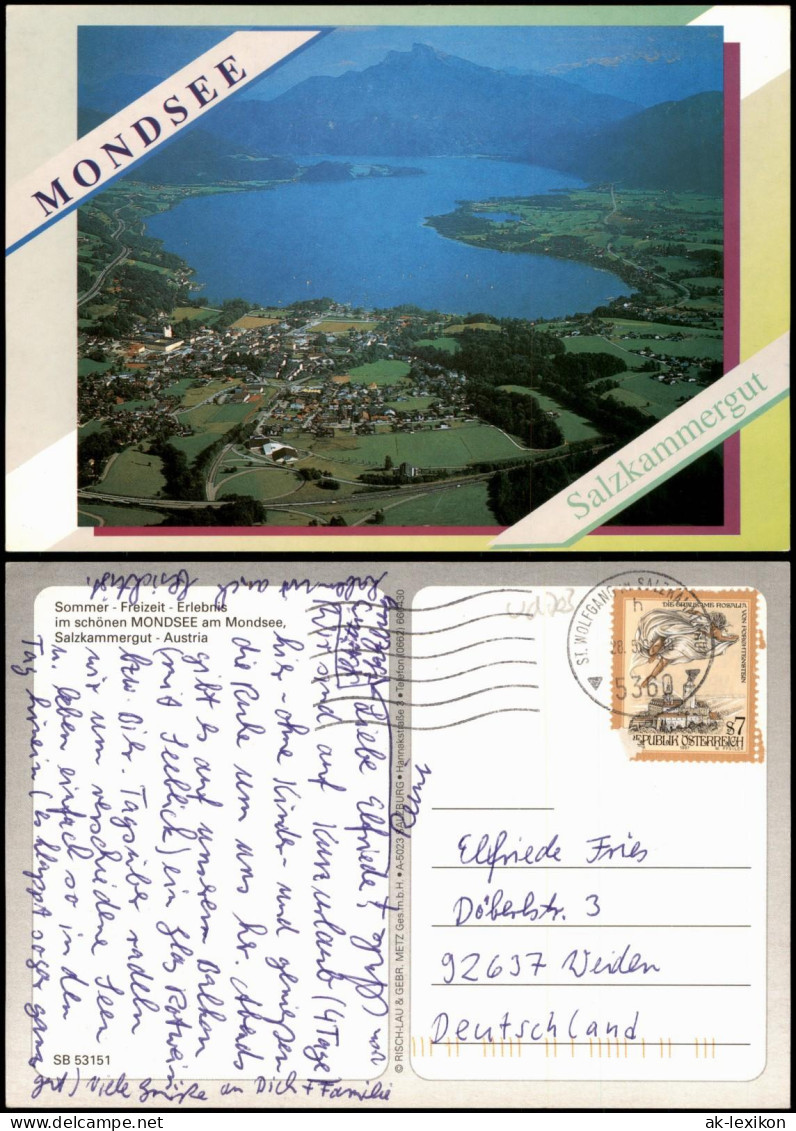 MONDSEE
Salzkammergut
Sommer - Freizeit - Erlebnis
im schönen MONDSEE am Mondsee,
Salzkammergut - Austria
Liebe Elfriede!
Wir sind auf Kurzurlaub (4 Tage)
hier - ohne Kinder - und genießen
die Ruhe um uns her. Abends
gibt es auf unserem Balkon
(mit Seeblick) ein Glas Rotwein
bzw. Bier. Tagsüber radeln
wir um verschiedene Seen
u. leben einfach so in den
Tag hinein (es klappt sogar ganz
gut) Viele Grüße an Dich + Familie
SB 53151
© RISCH-LAU & GEBR. METZ Ges.m.b.H. • A-5023 SALZBURG • Hannakstraße 3 • Telefon (0662)
ST. WOLFGANG IM SALZKAMMERGUT
5360
S7
REPUBLIK ÖSTERREICH
Elfriede Fries
Döberlstr. 3
92637 Weiden
Deutschland
ak-lexikon